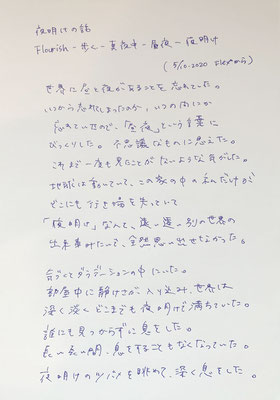 夜明けの話
Flourish - 歩く - 真夜中 - 昼夜 - 夜明け
(5/10-2020 Flexから)
世界に昼と夜があることを忘れていた。
いつから忘れてしまったのか、いつの間にか
忘れていたので、「昼夜」という言葉に
びっくりした。不思議なものに思えた。
これまで一度も見たことがないような気がした。
地球は動いていて、この家の中の私だけが
どこにも行き場を失っていて
「夜明け」なんて、遠い遠い別の世界の
出来事みたいで、全然思い出せなかった。
白くてグラデーションの中にいた。
動画中に静けさが入り込み、世界は
深く淡くどこまでも夜明けで満ちていた。
誰にも見つからずに息をした。
長い長い間、息をすることもなくなっていた。
夜明けのツバメを眺めて、深く息をした。